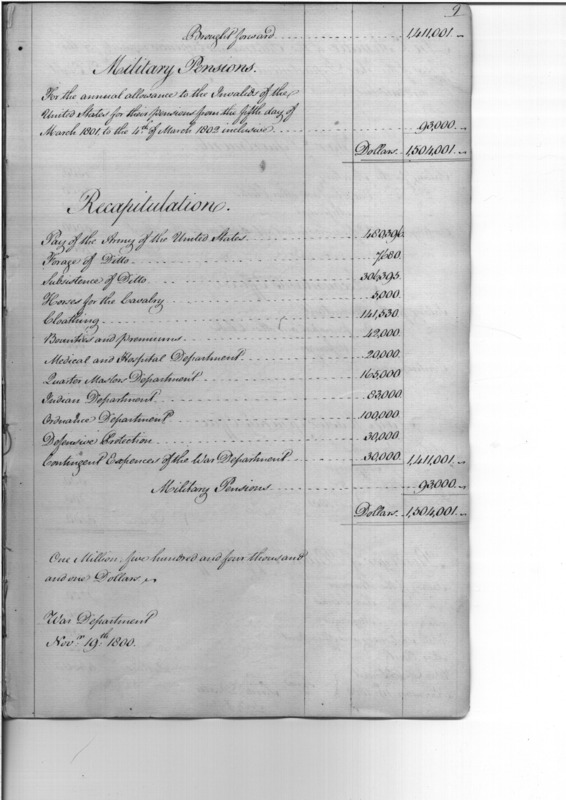 9
Brought forward 1,411,001.
Military Pensions.
For the annual allowance to the Invalids of the
United States for their pensions from the fifth day of
March 1801 to the 4th of March 1802 inclusive 93,000.
Dollars. 1,504,001.
Recapitulation.
Pay of the Army of the United States 480,396.
Forage of Ditto 7,680.
Subsistence of Ditto 306,395.
Horses for the Cavalry 5,000.
Cloathing 141,530.
Bounties and premiums 42,000.
Medical and Hospital Department 20,000.
Quarter Masters Department 165,000.
Indian Department 83,000.
Ordnance Department 100,000.
Defensive Protection 30,000.
Contingent Expences of the War Department 30,000. 1,411,001.
Military Pensions 93,000.
Dollars. 1,504,001.
One Million, five hundred and four thousand
and one Dollars
War Department
Novr. 19th 1800.